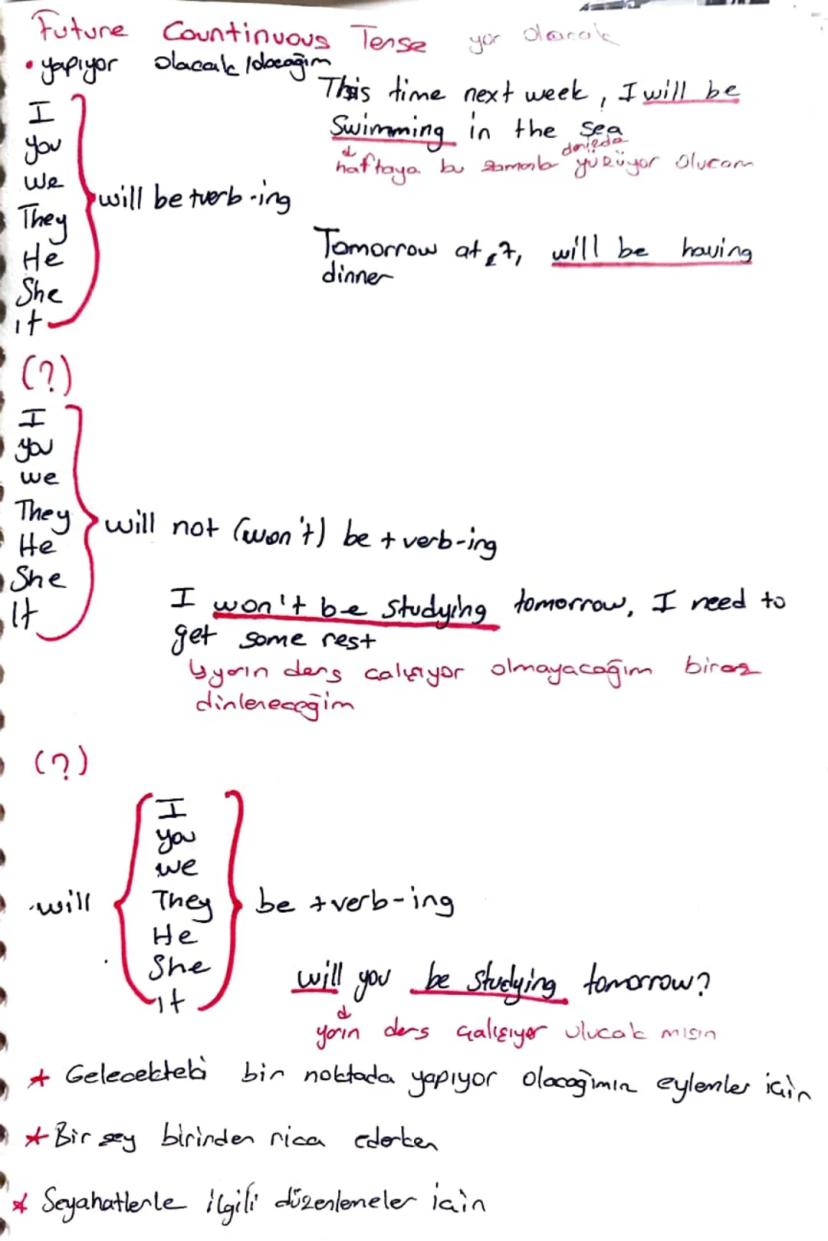 Future Countinuous Tense yor olarak
• yapıyor olacak /olacağım
This time next week, I will be
Swimming in the sea
denizde
haftaya bu zamanla yüzüyor olucam
I
you
we
They
He
She
it
will be +verb -ing
Tomorrow at 7, will be having
dinner
(?)
I
you
we
They
He
She
It
will not (won't) be + verb-ing
I won't be studying tomorrow, I need to
get some rest
yarın ders çalışıyor olmayacağım biraz
dinleneceğim
(?)
will
I
you
we
They
He
She
it
be +verb-ing
will you be studying tomorrow?
yarın ders çalışıyor ulucak mısın
* Gelecekteki bir noktada yapıyor olacağımız eylemler için
* Bir şey birinden rica ederken
* Seyahatlerle ilgili düzenlemeler için